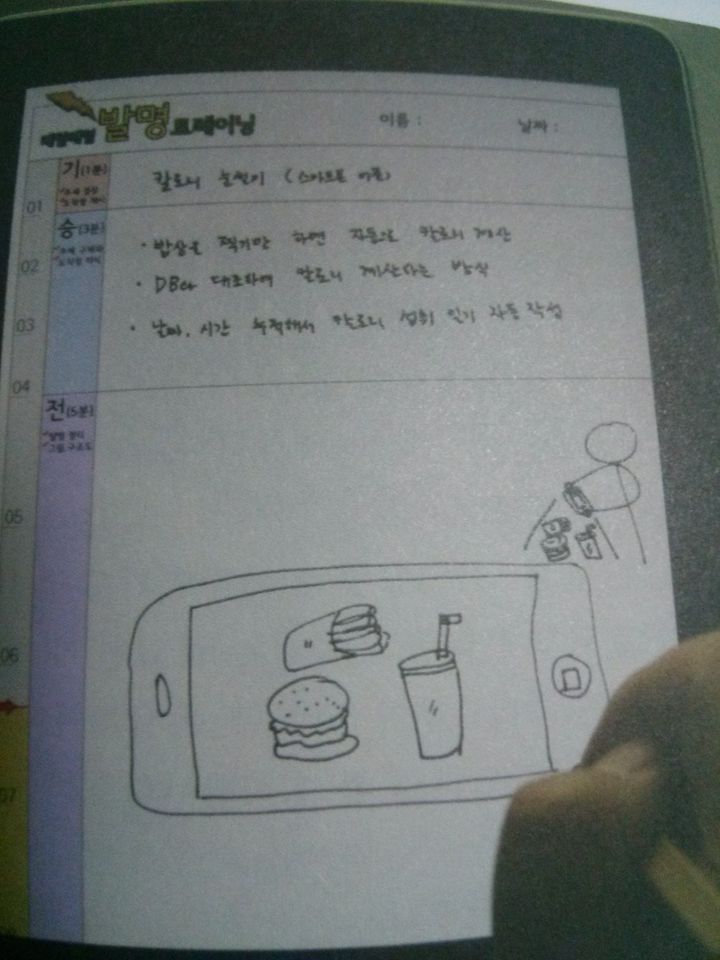 발명 트레이닝
이름 :
날짜 :
기(1분)
칼로리 (스마트폰 어플)
01
승(3분)
• 밥상을 찍기만 하면 자동으로 칼로리 계산
02
• DB와 대조하여 칼로리 계산하는 방식
03
• 날짜, 시간 누적해서 칼로리 섭취 일기 자동 작성
04
전(5분)
05
06
07